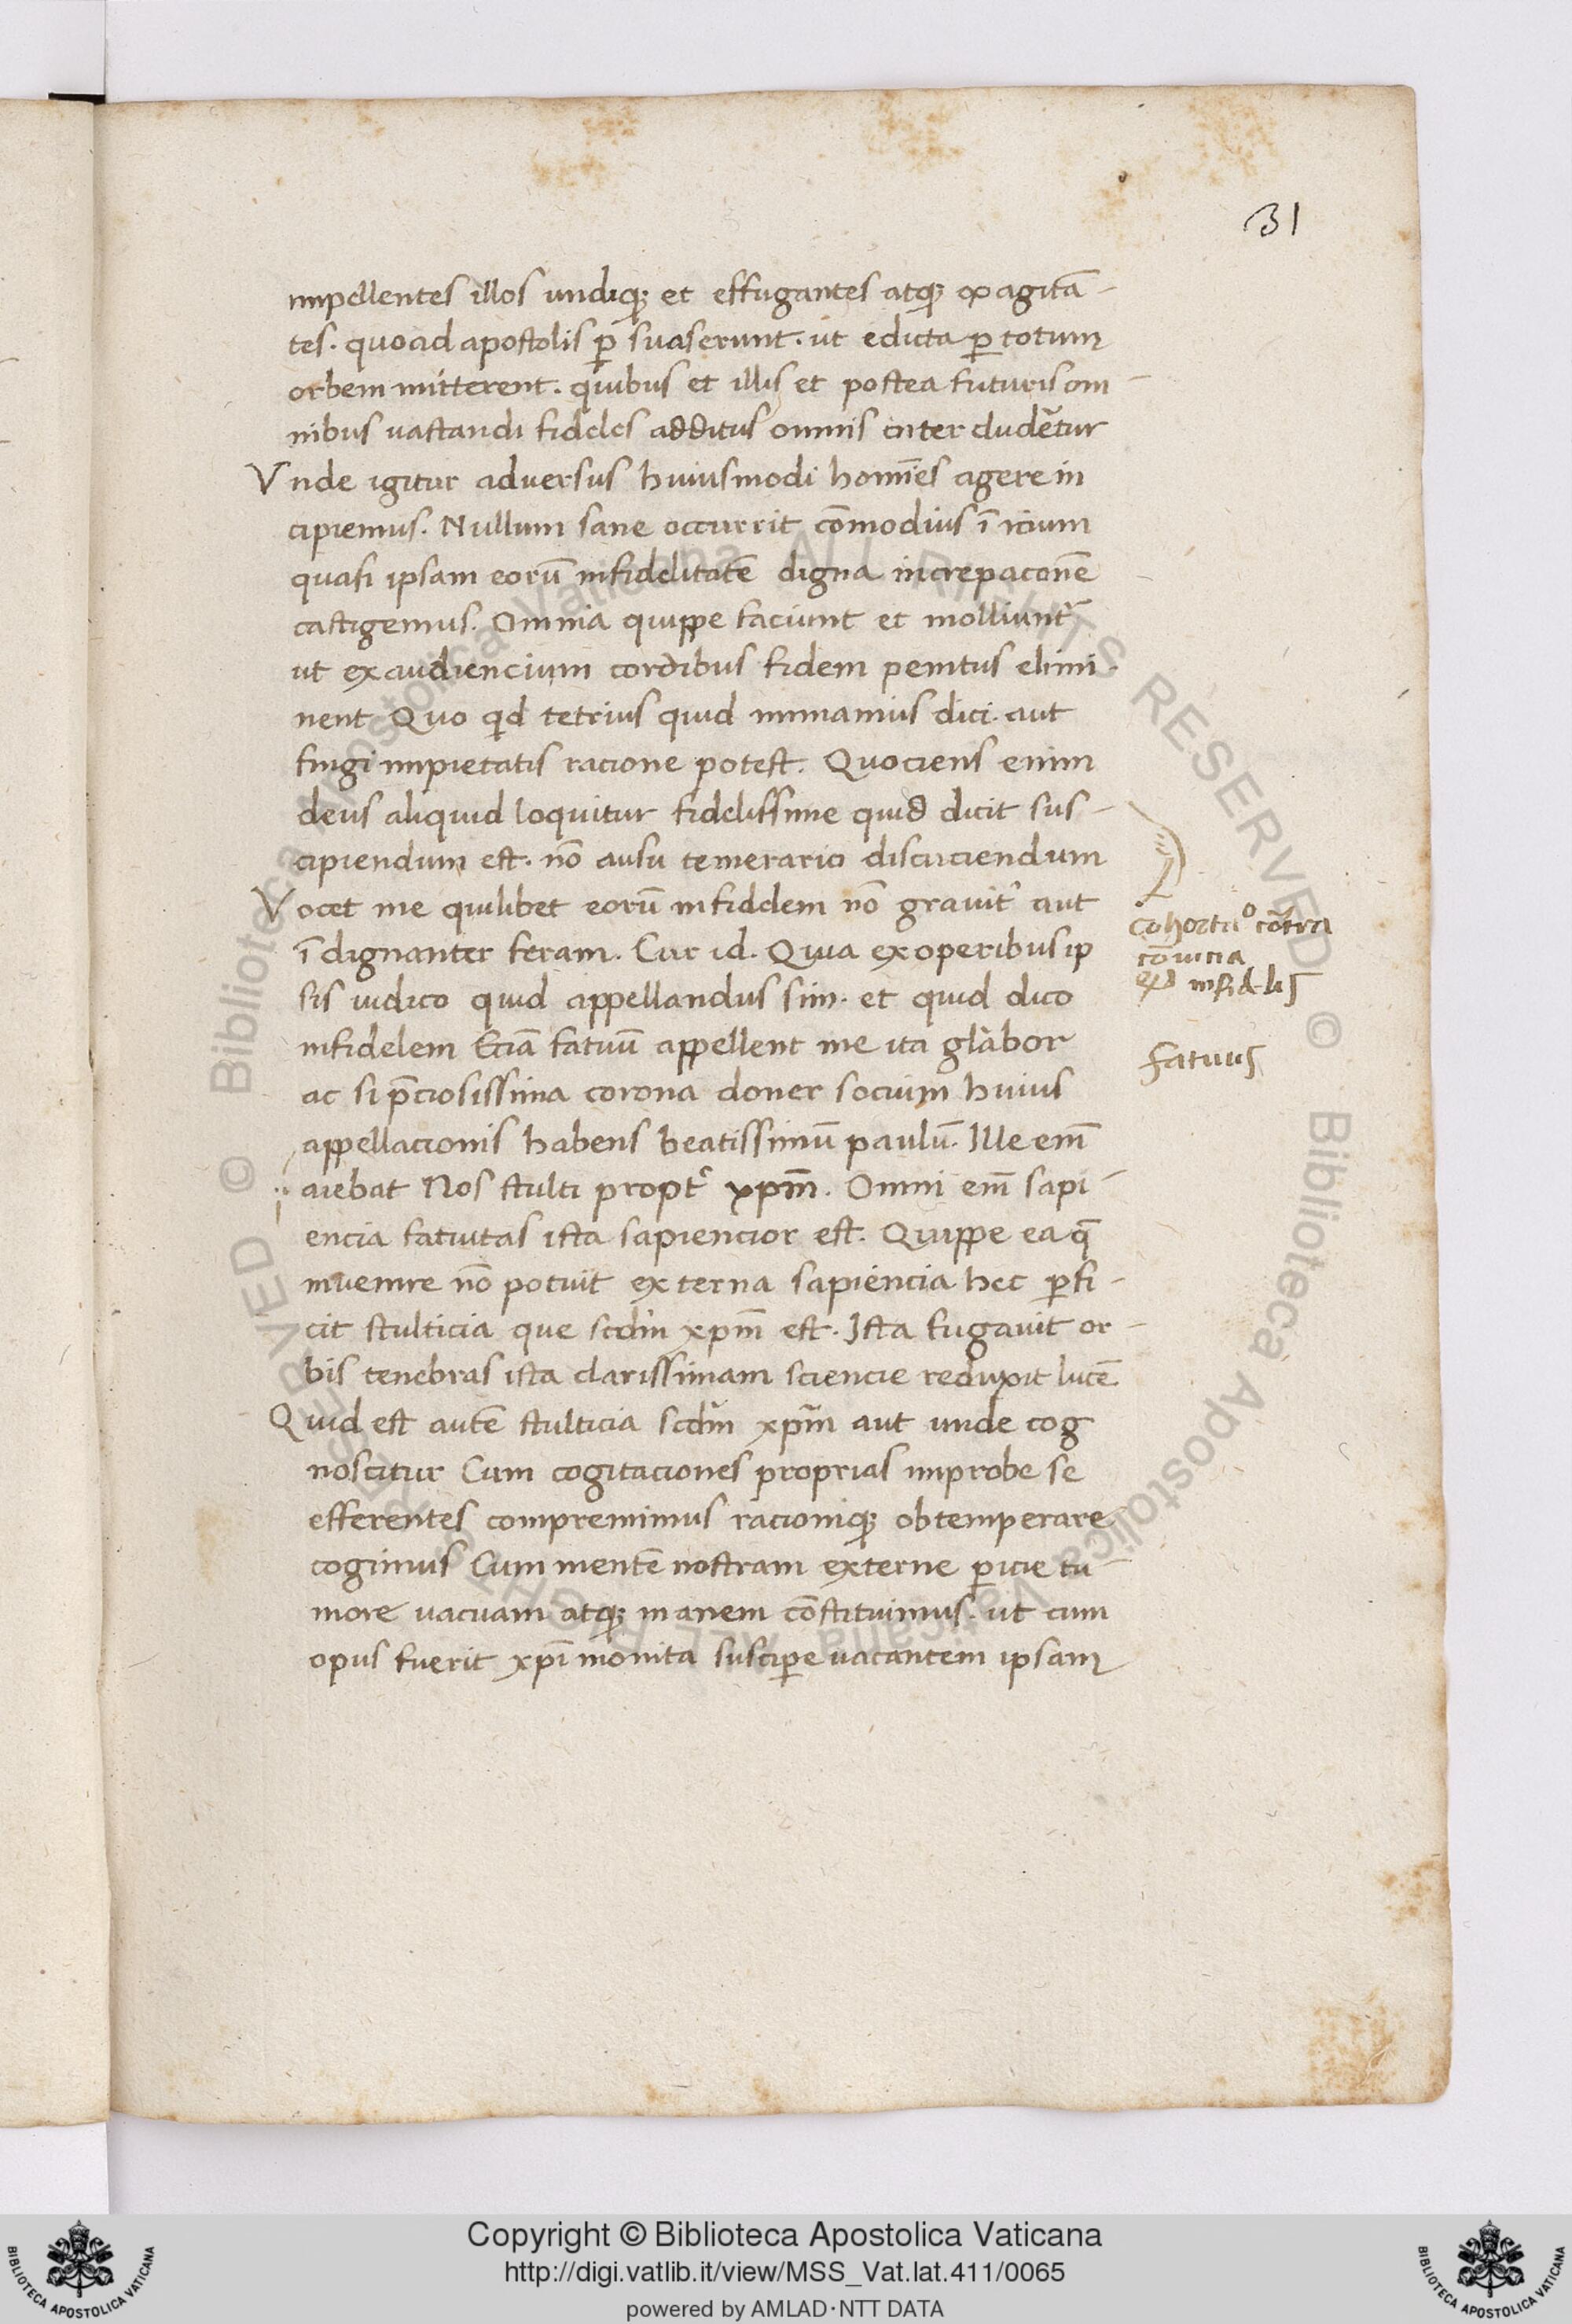 31
impellentes illos undiqꝫ et effugantes atqꝫ exagitā-
tes. quoad apostolis ꝑ suaserunt. ut edicta ꝑ totum
orbem mitterent. quibus et illis et postea futuris om-
nibus uastandi fideles additus omnis interdudētur
Vnde igitur adversus huiusmodi homīes agere in
cipiemus. Nullum sane occurrit cōmodius ī icium
quasi ipsam eorū infidelitatē digna increpaconē
castigemus. Omnia quippe faciunt et molliunt᷑
ut ex audiencium cordibus fidem penitus elimi-
nent Quo qid tetrius quid inmanius dici. aut
fingi impietatis racione potest. Quociens enim
deus aliquid loquitur fidelissime quid dicit sus-
cipiendum est. nō ausu temerario discuciendum
Vocet me quilibet eorū infidelem nō grauit᷑ aut
ī dignanter feram. Cur id. Quia ex operibus ip
sis iudico quid appellandus sim. et quid dico
infidelem Eciā fatuū appellent me ita glabor
ac si p̄ciosissima corona doner socium huius
appellacionis habens beatissimū paulū. Ille em̄
aiebat Nos stulti propt᷑ xpm̄. Omni em̄ sapi-
encia fatuitas ista sapiencior est. Quippe ea q̄
inuenire nō potuit externa sapiencia hec ꝑfi-
cit stulticia que scdm̄ xpm̄ est. Ista fugauit or-
bis tenebras ista clarissimam sciencie reduxit lucē
Quid est autē stulticia scdm̄ xpm̄ aut unde cog
noscitur Cum cogitaciones proprias improbe se
efferentes compremimus racioniqꝫ obtemperare
cogimus Cum mentē nostram externe ꝑicie tu-
more uacuam atqꝫ inanem cōstituimus. ut cum
opus fuerit xpī monita suscipe uacantem ipsam
cohortaᵒ cōtra
cōuicia
infidelis
fatuus
Copyright © Biblioteca Apostolica Vaticana
http://digi.vatlib.it/view/MSS_Vat.lat.411/0065
powered by AMLAD·NTT DATA
BIBLIOTECA APOSTOLICA VATICANA
BIBLIOTECA APOSTOLICA VATICANA
© Biblioteca Apostolica Vaticana ALL RIGHTS RESERVED © Biblioteca Apostolica Vaticana ALL RIGHTS RESERVED